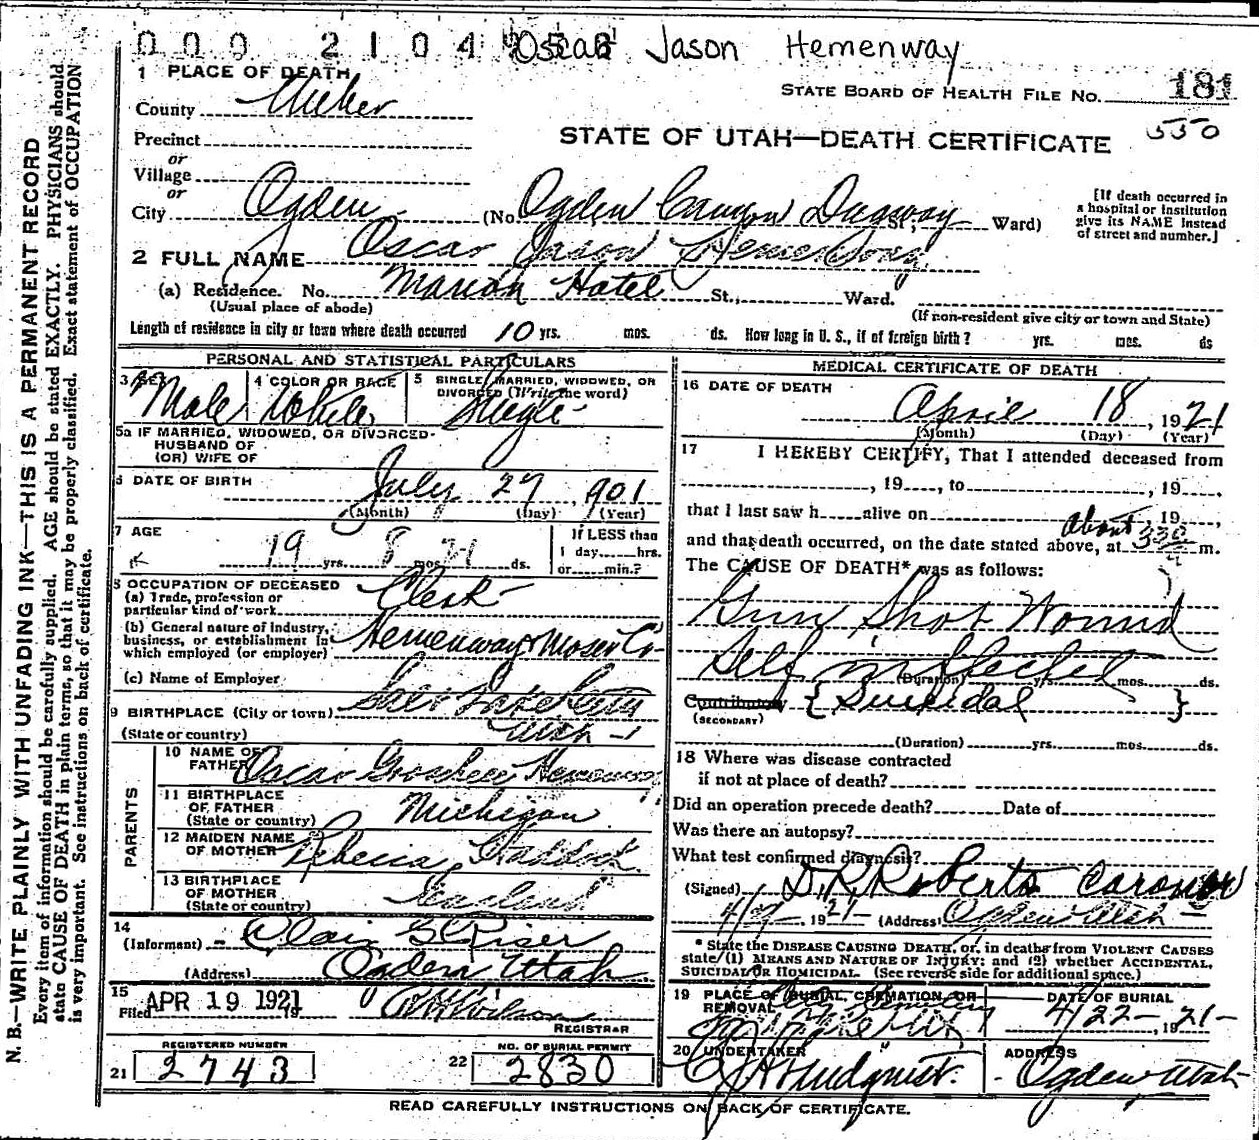 0 0 0 2 1 0 4 Oscar Jason Hemenway
1 PLACE OF DEATH
STATE BOARD OF HEALTH FILE No. 181
County Weber
550
STATE OF UTAH—DEATH CERTIFICATE
Precinct
or
Village
or
City Ogden (No. Ogden Canyon Dugway St.; Ward)
[If death occurred in
a hospital or institution
give its NAME instead
of street and number.]
2 FULL NAME Oscar Jason Hemenway
(a) Residence. No. Marion Hotel St., Ward.
(Usual place of abode)
(If non-resident give city or town and State)
Length of residence in city or town where death occurred 10 yrs. mos. ds. How long in U. S., if of foreign birth? yrs. mos. ds
PERSONAL AND STATISTICAL PARTICULARS
3 SEX Male
4 COLOR OR RACE White
5 SINGLE, MARRIED, WIDOWED, OR
DIVORCED (Write the word) Single
5a IF MARRIED, WIDOWED, OR DIVORCED
HUSBAND OF
(OR) WIFE OF
6 DATE OF BIRTH July 27, 1901
(Month) (Day) (Year)
7 AGE
19 yrs. 8 mos. 21 ds.
If LESS than
1 day____hrs.
or____min.?
8 OCCUPATION OF DECEASED
(a) Trade, profession or
particular kind of work Clerk
(b) General nature of industry,
business, or establishment in
which employed (or employer) Hemenway & Moser Co
(c) Name of Employer
9 BIRTHPLACE (City or town) Salt Lake City
(State or country) Utah
PARENTS
10 NAME OF
FATHER Oscar Hemenway
11 BIRTHPLACE
OF FATHER
(State or country) Michigan
12 MAIDEN NAME
OF MOTHER Rebecca Haddock
13 BIRTHPLACE
OF MOTHER
(State or country) England
14
(Informant)
(Address) Ogden Utah
15
Filed APR 19 1921 Wilson
REGISTRAR
REGISTERED NUMBER
21 2743
NO. OF BURIAL PERMIT
22 2830
MEDICAL CERTIFICATE OF DEATH
16 DATE OF DEATH
April 18, 1921
(Month) (Day) (Year)
17 I HEREBY CERTIFY, That I attended deceased from
, 19 , to , 19 ,
that I last saw h____alive on , 19 ,
and that death occurred, on the date stated above, at About 330 P m.
The CAUSE OF DEATH* was as follows:
Gun Shot Wound
Self Inflicted
(Duration) yrs. mos. ds.
Contributory { Suicidal }
(SECONDARY)
(Duration) yrs. mos. ds.
18 Where was disease contracted
if not at place of death?
Did an operation precede death? Date of
Was there an autopsy?
What test confirmed diagnosis?
(Signed) D. R. Roberts Coroner
4/19 1921 (Address) Ogden Utah
* State the DISEASE CAUSING DEATH, or, in deaths from VIOLENT CAUSES
state (1) MEANS AND NATURE OF INJURY; and (2) whether ACCIDENTAL,
SUICIDAL or HOMICIDAL. (See reverse side for additional space.)
19 PLACE OF BURIAL, CREMATION, OR
REMOVAL
DATE OF BURIAL
4/22 , 1921
20 UNDERTAKER
Lindquist
ADDRESS
Ogden Utah
READ CAREFULLY INSTRUCTIONS ON BACK OF CERTIFICATE.
N. B.—WRITE PLAINLY WITH UNFADING INK—THIS IS A PERMANENT RECORD
Every item of information should be carefully supplied. AGE should be stated EXACTLY. PHYSICIANS should
state CAUSE OF DEATH in plain terms, so that it may be properly classified. Exact statement of OCCUPATION
is very important. See instructions on back of certificate.